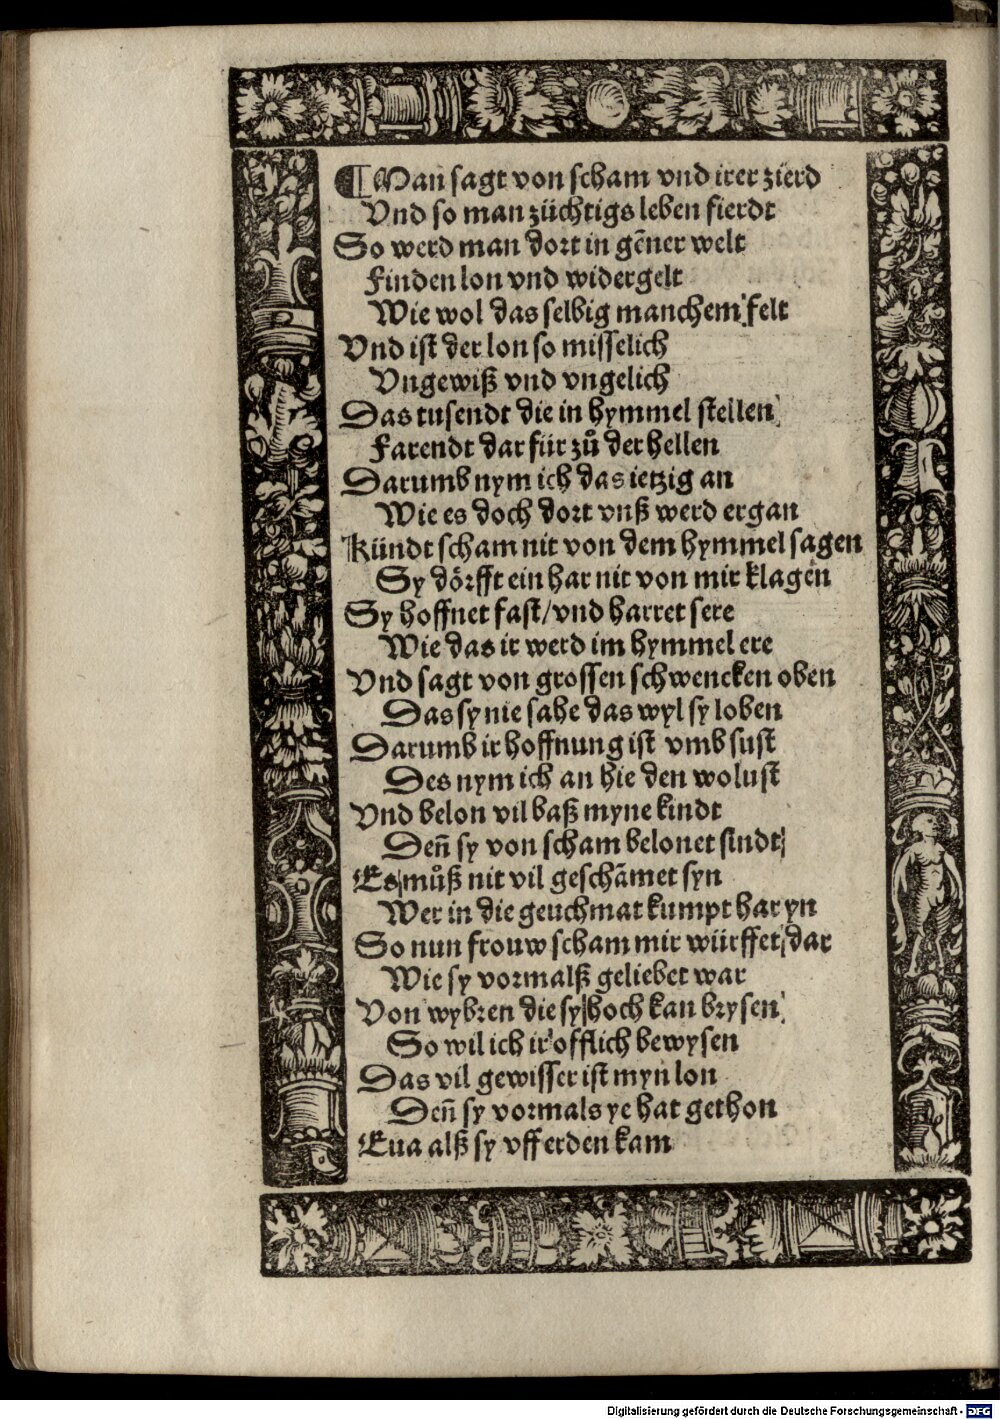 ¶ Man sagt von scham vnd irer zierd
Vnd so man züchtigs leben fierdt
So werd man dort in gēner welt
Finden lon vnd widergelt
Wie wol das selbig manchem felt
Vnd ist der lon so misselich
Vngewiß vnd vngelich
Das tusendt die in hymmel stellen
Farendt dar für zů der hellen
Darumb nym ich das ietzig an
Wie es doch dort vnß werd ergan
Kündt scham nit von dem hymmel sagen
Sy dörfft ein har nit von mir klagen
Sy hoffnet fast / vnd harret sere
Wie das ir werd im hymmel ere
Vnd sagt von grossen schwencken oben
Das sy nie sahe das wyl sy loben
Darumb ir hoffnung ist vmb sust
Des nym ich an hie den wolust
Vnd belon vil baß myne kindt
Deñ sy von scham belonet sindt
Es můß nit vil geschāmet syn
Wer in die geuchmat kumpt har yn
So nun frouw scham mir würffet dar
Wie sy vormalß geliebet war
Von wybren die sy hoch kan brysen
So wil ich ir offlich bewysen
Das vil gewisser ist myn lon
Deñ sy vormals ye hat gethon
Eua alß sy vff erden kam
Digitalisierung gefördert durch die Deutsche Forschungsgemeinschaft - DFG